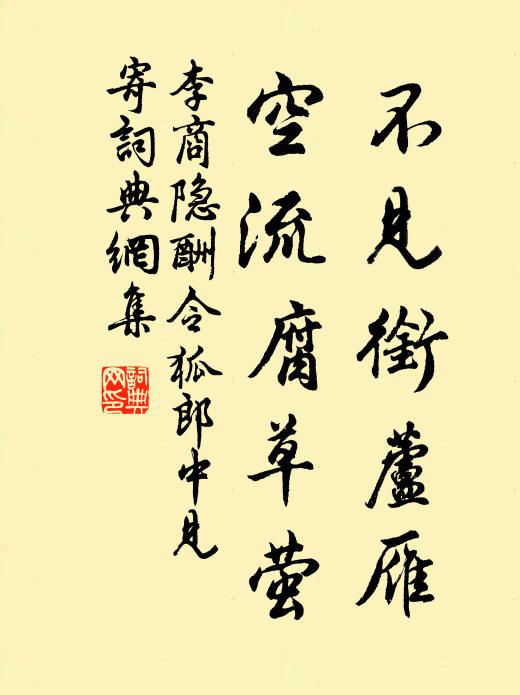 不见銜蘆雁
空流腐草萤
李商隐酬令狐郎中见
寄詞典網集
詞典
网印